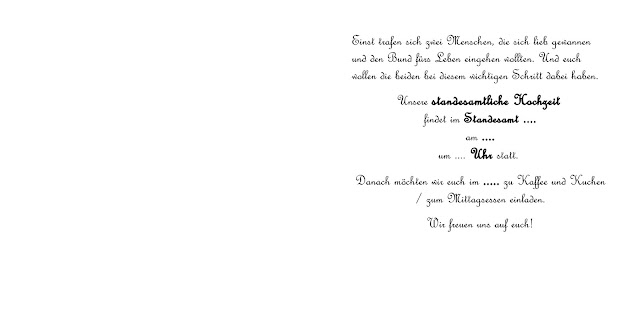 Einst trafen sich zwei Menschen, die sich lieb gewannen
und den Bund fürs Leben eingehen wollten. Und euch
wollen die beiden bei diesem wichtigen Schritt dabei haben.
Unsere standesamtliche Hochzeit
findet im Standesamt ....
am ....
um .... Uhr statt.
Danach möchten wir euch im ..... zu Kaffee und Kuchen
/ zum Mittagsessen einladen.
Wir freuen uns auf euch!